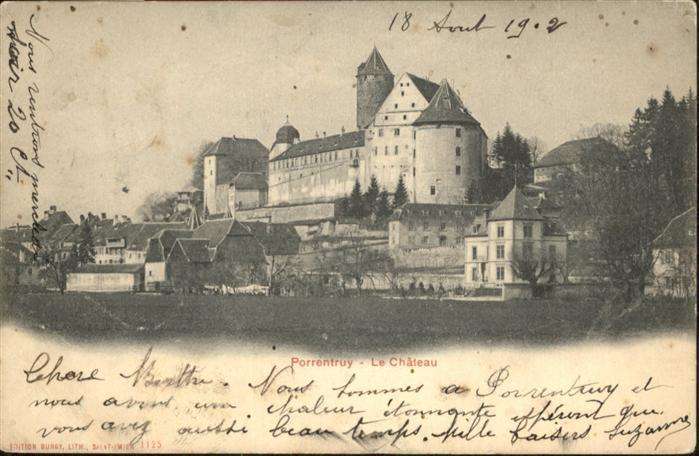 18 Aout 1902
Nous rentrons mercredi
soir 20 Ct.
Porrentruy - Le Château
Chère Berthe. Nous sommes a Porrentruy et
nous avons une chaleur étonnante espérons que
vous avez aussi beau temps. Mille baisers Suzanne
EDITION BURGY, LITH., SAINT-IMIER 1125